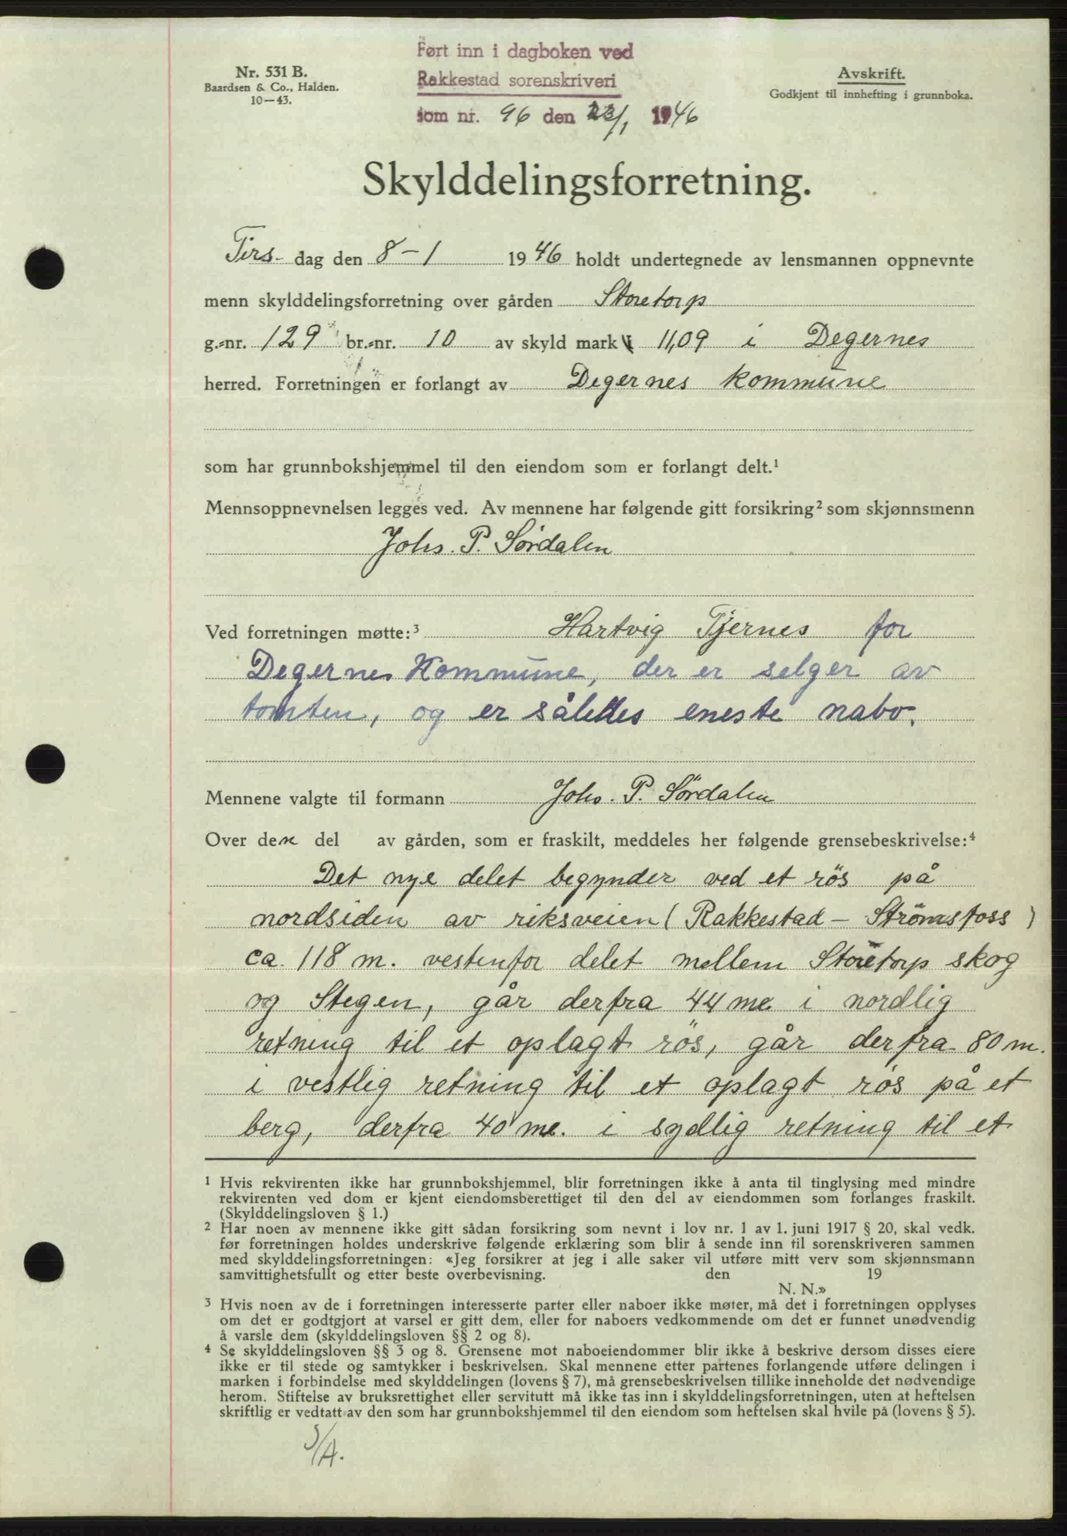 Ført inn i dagboken ved
Rakkestad sorenskriveri
som nr. 96 den 23/1 1946
Nr. 531 B.
Baardsen & Co., Halden.
10—43.
Avskrift.
Godkjent til innhefting i grunnboka.
Skylddelingsforretning.
Tirs- dag den 8-1 1946 holdt undertegnede av lensmannen oppnevnte
menn skylddelingsforretning over gården Storetorp
g.-nr. 129 br.-nr. 10 av skyld mark 11,09 i Degernes
herred. Forretningen er forlangt av Degernes kommune
som har grunnbokshjemmel til den eiendom som er forlangt delt.¹
Mennsoppnevnelsen legges ved. Av mennene har følgende gitt forsikring² som skjønnsmenn
Johs. P. Sördalen
Ved forretningen møtte:³ Hartvig Tjernes for
Degernes Kommune, der er selger av
tomten, og er således eneste nabo.
Mennene valgte til formann Johs. P. Sördalen
Over den del av gården, som er fraskilt, meddeles her følgende grensebeskrivelse:⁴
Det nye delet begynder ved et rös på
nordsiden av riksveien (Rakkestad - Strömsfoss)
ca. 118 m. vestenfor delet mellem Storetorp skog
og Stegen, går derfra 44 me i nordlig
retning til et oplagt rös, går derfra 80 m.
i vestlig retning til et oplagt rös på et
berg, derfra 40 me. i sydlig retning til et
¹ Hvis rekvirenten ikke har grunnbokshjemmel, blir forretningen ikke å anta til tinglysing med mindre
rekvirenten ved dom er kjent eiendomsberettiget til den del av eiendommen som forlanges fraskilt.
(Skylddelingsloven § 1.)
² Har noen av mennene ikke gitt sådan forsikring som nevnt i lov nr. 1 av 1. juni 1917 § 20, skal vedk.
før forretningen holdes underskrive følgende erklæring som blir å sende inn til sorenskriveren sammen
med skylddelingsforretningen: «Jeg forsikrer at jeg i alle saker vil utføre mitt verv som skjønnsmann
samvittighetsfullt og etter beste overbevisning. den 19
N. N.»
³ Hvis noen av de i forretningen interesserte parter eller naboer ikke møter, må det i forretningen opplyses
om det er godtgjort at varsel er gitt dem, eller for naboers vedkommende om det er funnet unødvendig
å varsle dem (skylddelingsloven §§ 2 og 8).
⁴ Se skylddelingsloven §§ 3 og 8. Grensene mot naboeiendommer blir ikke å beskrive dersom disses eiere
ikke er til stede og samtykker i beskrivelsen. Skal mennene etter partenes forlangende utføre delingen i
marken i forbindelse med skylddelingen (lovens § 7), må grensebeskrivelsen tillike inneholde det nødvendige
herom. Stiftelse av bruksrettighet eller servitutt må ikke tas inn i skylddelingsforretningen, uten at heftelsen
skriftlig er vedtatt av den som har grunnbokshjemmel til den eiendom som heftelsen skal hvile på (lovens § 5).